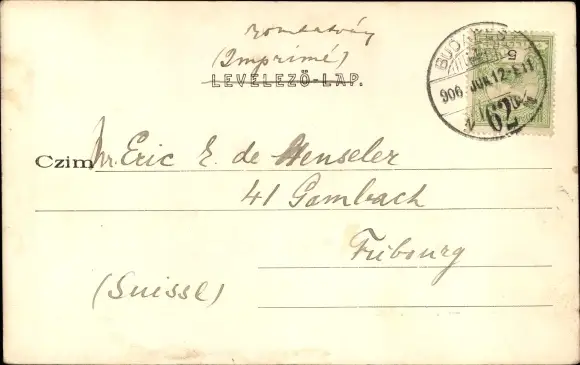 Nyomtatvány
(Imprimé)
LEVELEZŐ-LAP.
BUDAPEST
906 JUN 12
62
5
Czim Mr. Eric E. de Henseler
41 Gambach
Fribourg
(Suisse)